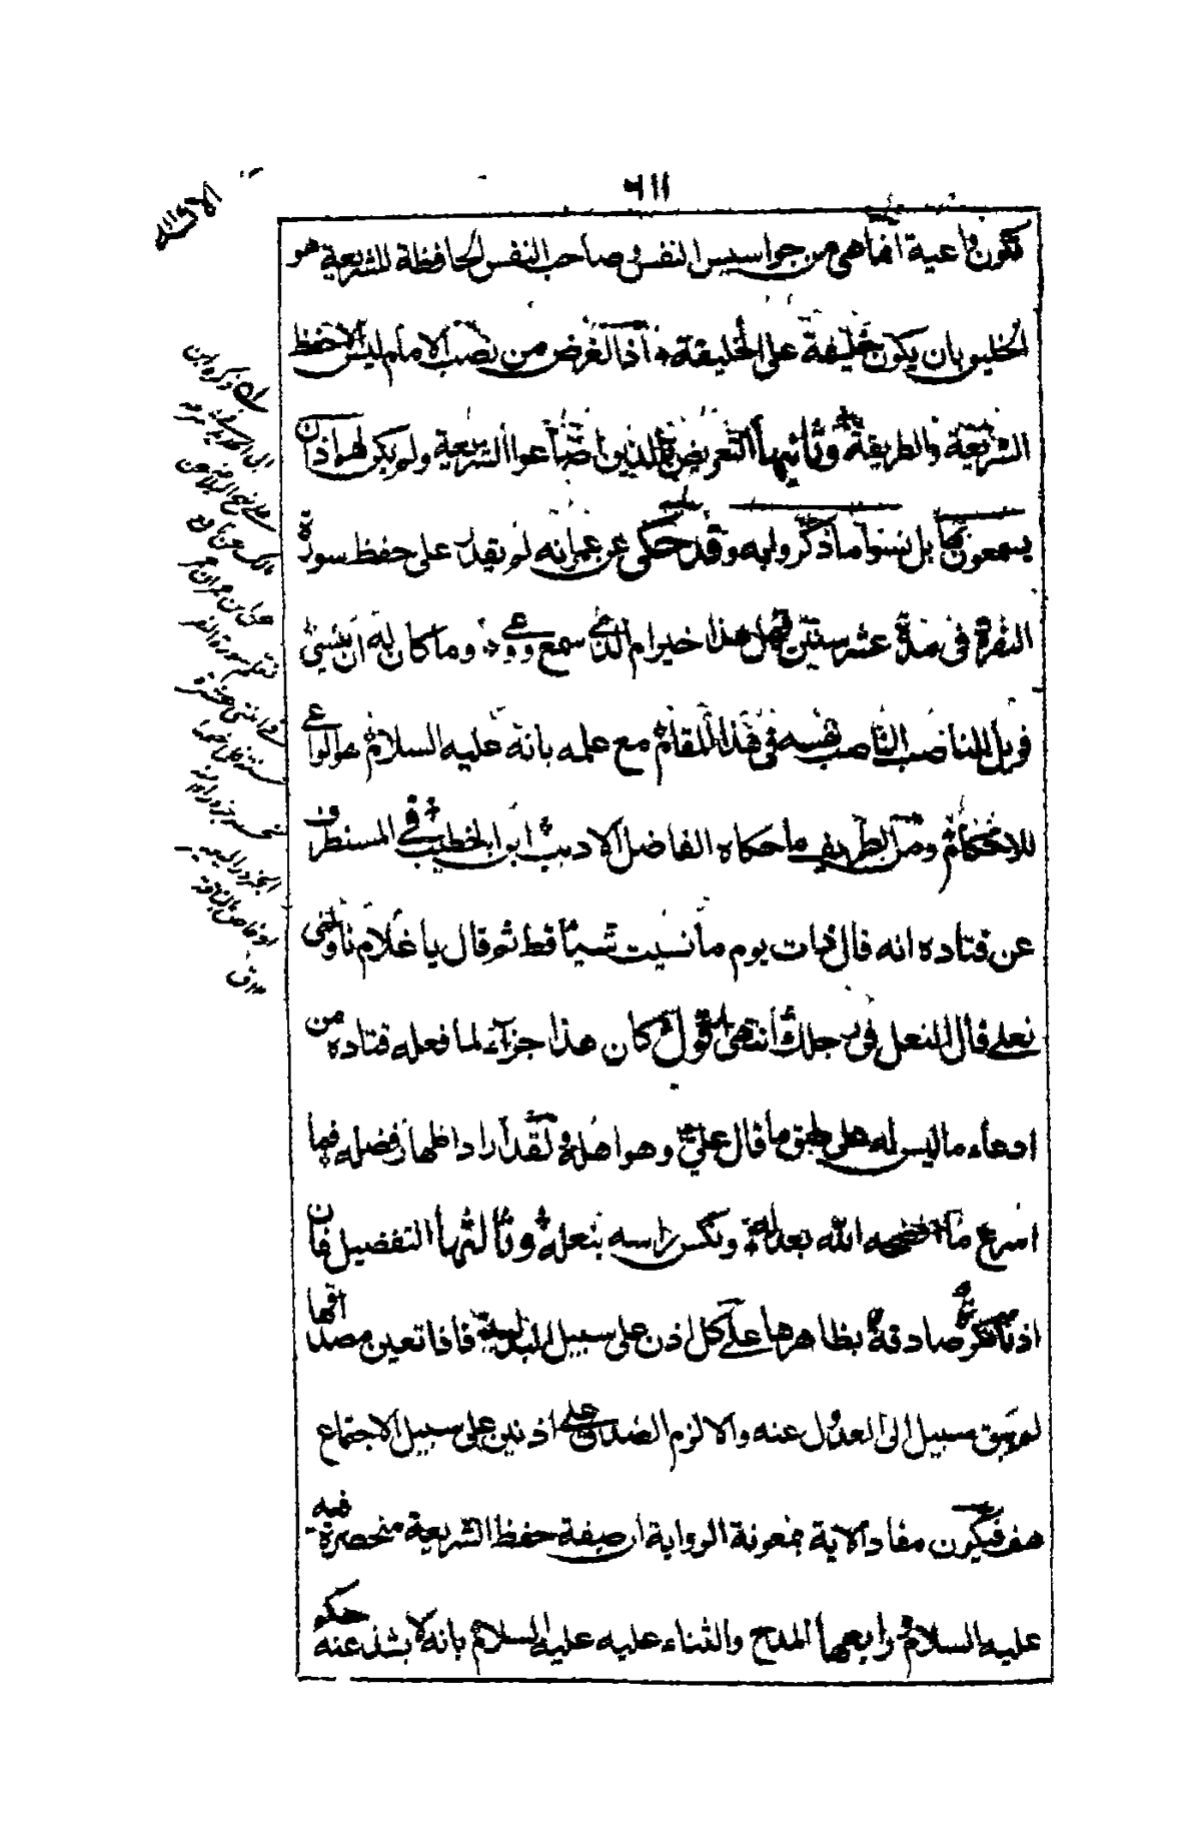 ٦١١
فكون واعية انما هي من جواسيس النفس و صاحب النفس الحافظة للشريعة هو
الخليق بان يكون خليفة على الخليقة اذ الغرض من نصب الامام ليس الا حفظ
الشريعة والطريقة وثانيها التعريض بالذين اضاعوا الشريعة ولم يكن لهم اذان
يسمعون بها بل نسوا ما ذكروا به وقد حكى عن عمر انه لم يقدر على حفظ سورة
البقرة في مدة عشر سنين فهل هذا خير ام الذي سمع ووعى وما كان له ان ينسى
فويل للناصب الناصب نفسه في هذا المقام مع علمه بانه عليه السلام هو الواعي
للاحكام ومن الطريف ما حكاه الفاضل الاديب ابن الخطيب في المستطرف
عن قتاده انه قال ذات يوم ما نسيت شيئا قط ثم قال يا غلام ناولني
نعلي قال النعل في رجلك انتهى اقول كان هذا جزاء لما فعله قتاده من
ادعاء ما ليس له على طبق ما قال علي وهو اهله ولقد اراد اظهار فضله فما
اسرع ما فضحه الله بعدله ونكس راسه بنعله وثالثها التفضيل فان
اذنا نكرة صادقة بظاهرها على كل اذن على سبيل البدلية فاذا تعين مصداقها
لم يبق سبيل الى العدول عنه والا لزم الصدق على اذنين على سبيل الاجتماع
هف فيكون مفاد الاية بمعونة الرواية ان صفة حفظ الشريعة منحصرة فيه
عليه السلام رابعها المدح والثناء عليه عليه السلام بانه لا يشذ عنه حكم